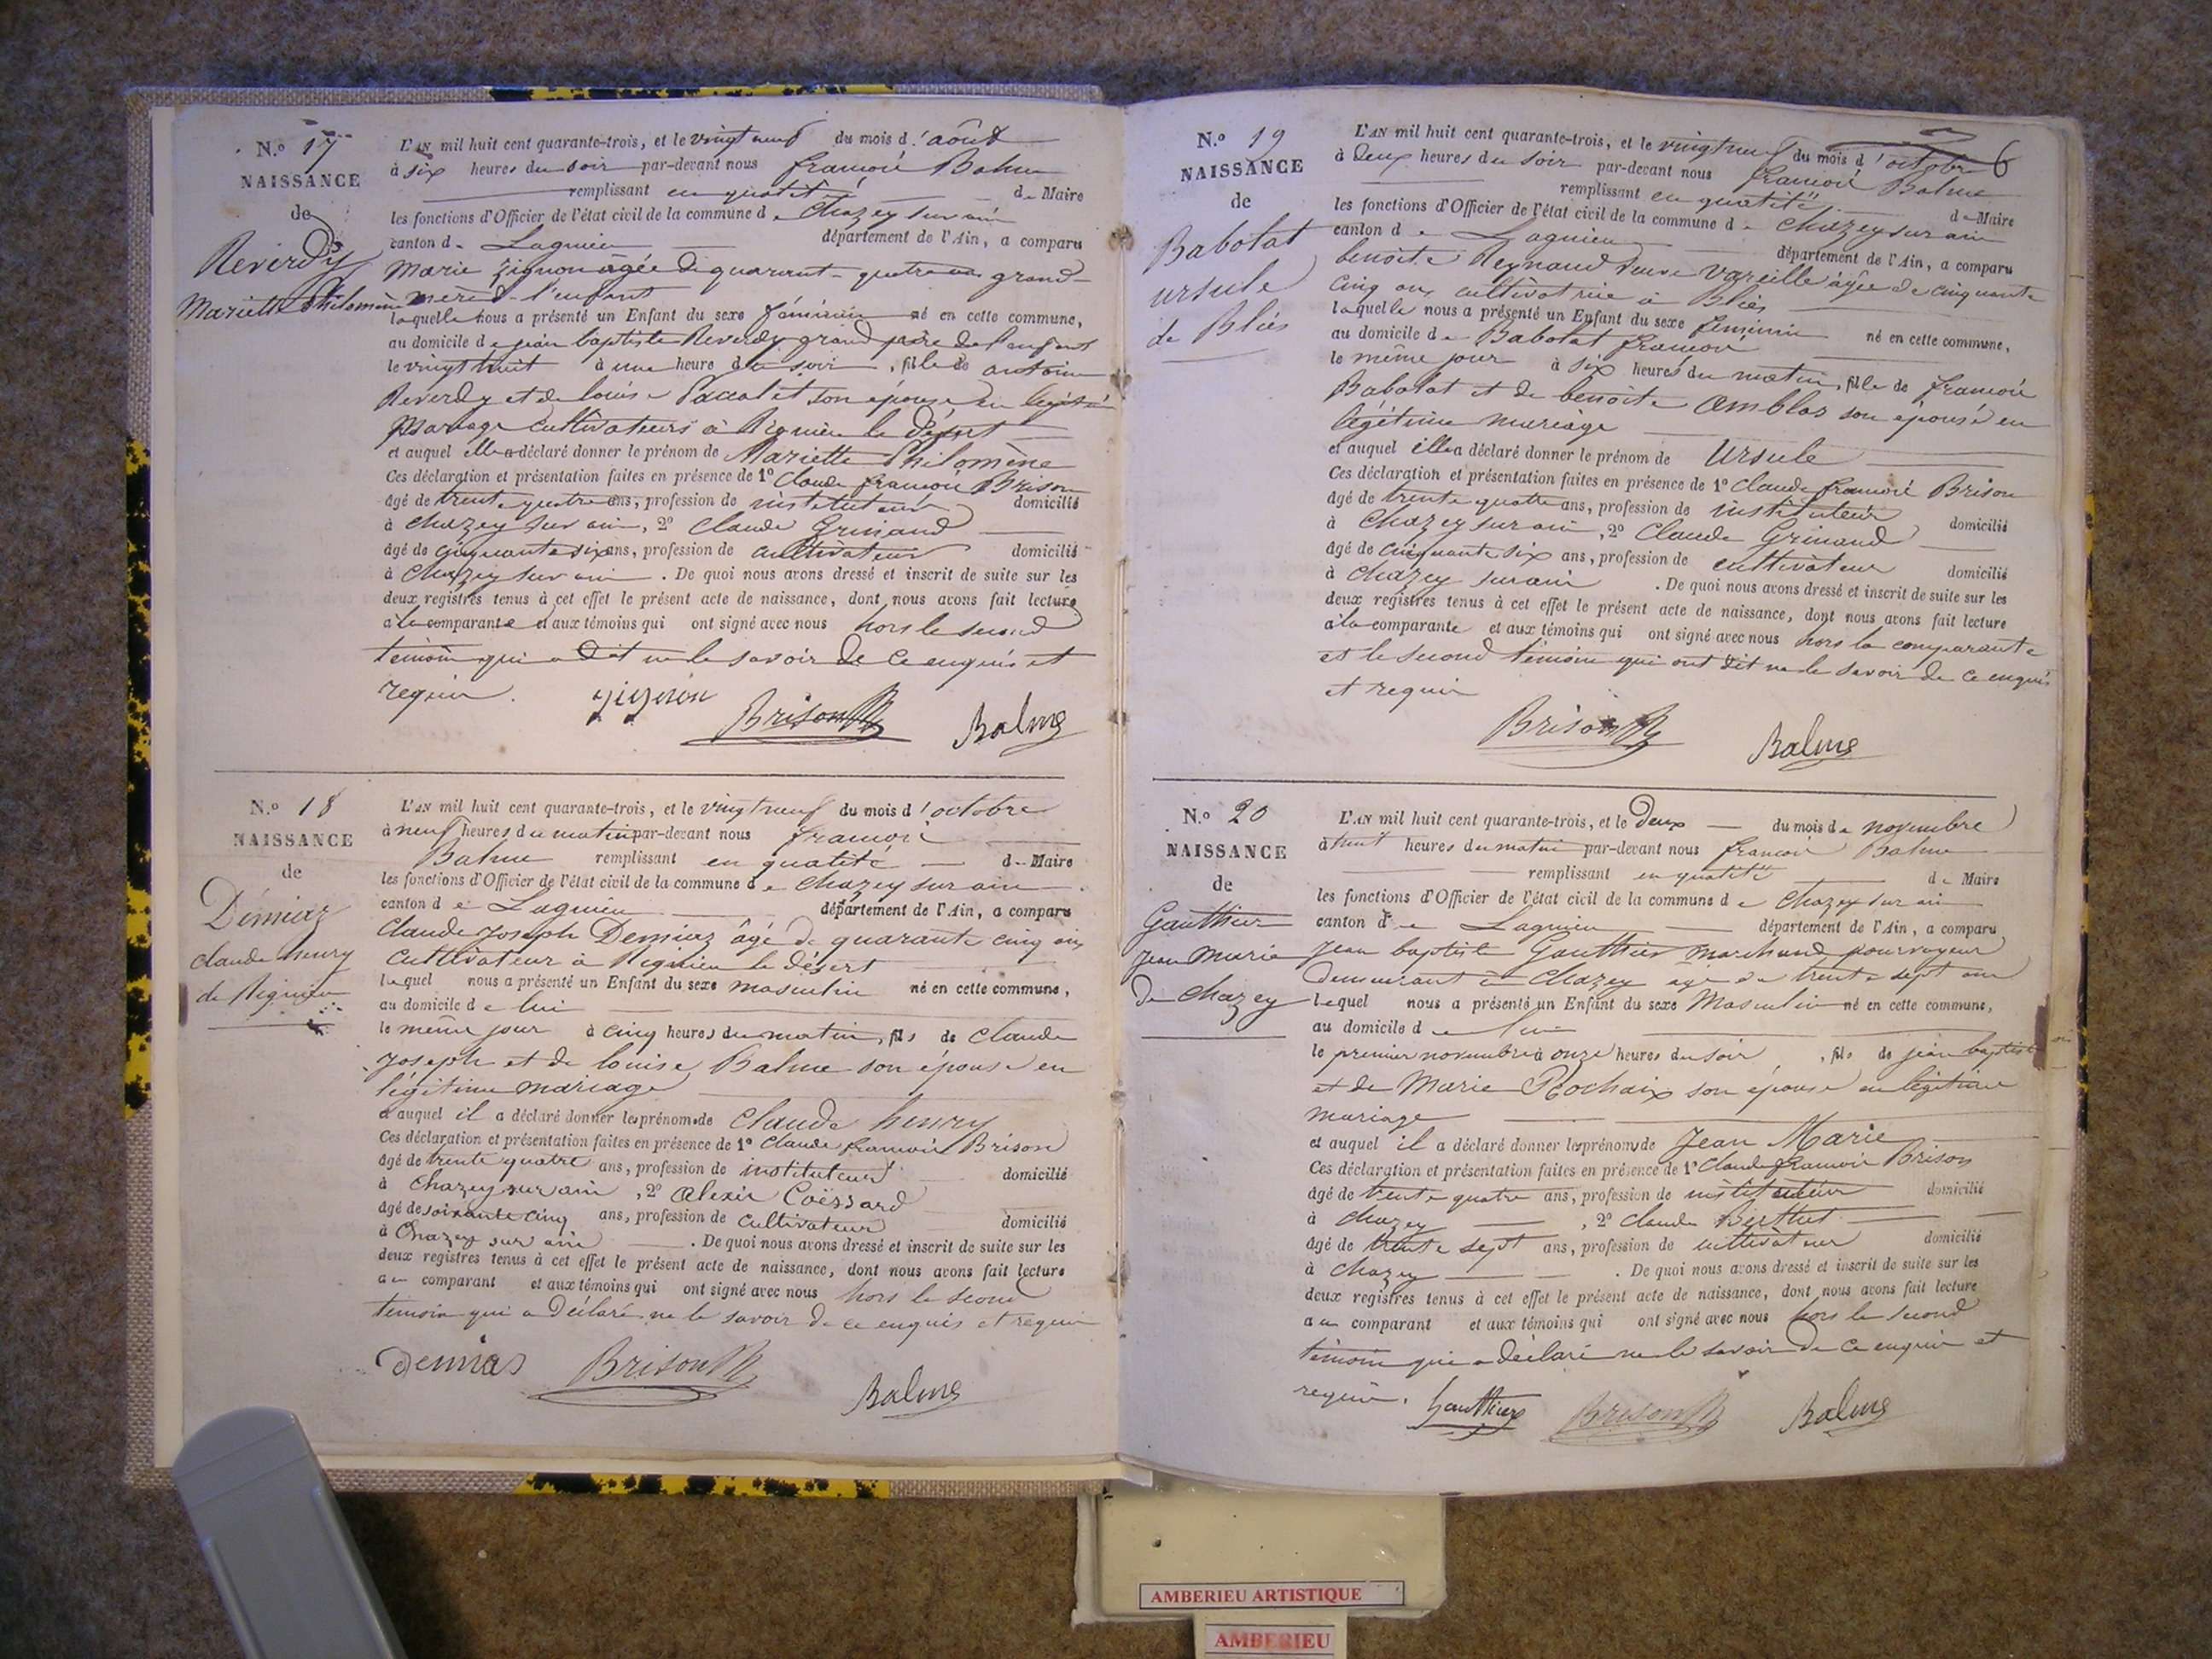 N.o 17
NAISSANCE
de
Reverdy
Mariette Philomène
L'AN mil huit cent quarante-trois, et le vingt neuf du mois d'août
à six heures du soir par-devant nous françois Balme
remplissant en qualité de Maire
les fonctions d'Officier de l'état civil de la commune de Chazey sur ain
canton de Lagnieu département de l'Ain, a comparu
Marie gignon âgée de quarante-quatre ans grand-
mère de l'enfant
laquelle nous a présenté un Enfant du sexe féminin né en cette commune,
au domicile de jean baptiste Reverdy grand père de l'enfant
le vingt huit à une heure du soir, fille de antoine
Reverdy et de louise Paccalet son épouse en légitime
Mariage cultivateurs à Rignieu le désert
et auquel elle a déclaré donner le prénom de Mariette Philomène
Ces déclaration et présentation faites en présence de 1º Claude françois Brison
âgé de trente quatre ans, profession de instituteur domicilié
à chazey sur ain, 2º Claude Grinand
âgé de cinquante six ans, profession de cultivateur domicilié
à Chazey sur ain. De quoi nous avons dressé et inscrit de suite sur les
deux registres tenus à cet effet le présent acte de naissance, dont nous avons fait lecture
à la comparante et aux témoins qui ont signé avec nous hors le second
témoin qui a dit ne le savoir de ce enquis et
requis.
gignon Brison Balme
N.o 18
NAISSANCE
de
Démiaz
claude henry
de Rignieu
L'AN mil huit cent quarante-trois, et le vingt neuf du mois d'octobre
à neuf heures du matin par-devant nous françois
Balme remplissant en qualité de Maire
les fonctions d'Officier de l'état civil de la commune de Chazey sur ain
canton de Lagnieu département de l'Ain, a comparu
Claude Joseph Demiaz âgé de quarante cinq ans
cultivateur à Rignieu le désert
lequel nous a présenté un Enfant du sexe masculin né en cette commune,
au domicile de lui
le même jour à cinq heures du matin, fils de claude
Joseph et de louise Balme son épouse en
légitime mariage
et auquel il a déclaré donner les prénoms de Claude henry
Ces déclaration et présentation faites en présence de 1º Claude françois Brison
âgé de trente quatre ans, profession de instituteur domicilié
à Chazey sur ain, 2º alexis Coëssard
âgé de soixante cinq ans, profession de cultivateur domicilié
à Chazey sur ain. De quoi nous avons dressé et inscrit de suite sur les
deux registres tenus à cet effet le présent acte de naissance, dont nous avons fait lecture
au comparant et aux témoins qui ont signé avec nous hors le second
témoin qui a déclaré ne le savoir de ce enquis et requis
Demias Brison Balme
6
N.o 19
NAISSANCE
de
Babolat
ursule
de Bliès
L'AN mil huit cent quarante-trois, et le vingt neuf du mois d'octobre
à deux heures du soir par-devant nous françois Balme
remplissant en qualité de Maire
les fonctions d'Officier de l'état civil de la commune de Chazey sur ain
canton de Lagnieu département de l'Ain, a comparu
benoite Reynaud veuve Vareille âgée de cinquante
cinq ans cultivatrice à Bliès
laquelle nous a présenté un Enfant du sexe féminin né en cette commune,
au domicile de Babolat françois
le même jour à six heures du matin, fille de françois
Babolat et de benoite Amblar son épouse en
légitime mariage
et auquel elle a déclaré donner le prénom de Ursule
Ces déclaration et présentation faites en présence de 1º Claude françois Brison
âgé de trente quatre ans, profession de instituteur
à Chazey sur ain, 2º Claude Grinand domicilié
âgé de cinquante six ans, profession de cultivateur domicilié
à chazey sur ain. De quoi nous avons dressé et inscrit de suite sur les
deux registres tenus à cet effet le présent acte de naissance, dont nous avons fait lecture
à la comparante et aux témoins qui ont signé avec nous hors la comparante
et le second témoin qui ont dit ne le savoir de ce enquis
et requis
Brison Balme
N.o 20
NAISSANCE
de
Gauthier
Jean Marie
de Chazey
L'AN mil huit cent quarante-trois, et le deux du mois de novembre
à huit heures du matin par-devant nous françois Balme
remplissant en qualité de Maire
les fonctions d'Officier de l'état civil de la commune de Chazey sur ain
canton de Lagnieu département de l'Ain, a comparu
Jean baptiste Gauthier marchand pourvoyeur
demeurant à Chazey agé de trente sept ans
lequel nous a présenté un Enfant du sexe Masculin né en cette commune,
au domicile de lui
le premier novembre à onze heures du soir, fils de jean baptiste
et de Marie Rochaix son épouse en légitime
mariage
et auquel il a déclaré donner les prénoms de Jean Marie
Ces déclaration et présentation faites en présence de 1º Claude françois Brison
âgé de trente quatre ans, profession de instituteur domicilié
à Chazey, 2º Claude Berthet
âgé de trente sept ans, profession de cultivateur domicilié
à Chazey. De quoi nous avons dressé et inscrit de suite sur les
deux registres tenus à cet effet le présent acte de naissance, dont nous avons fait lecture
au comparant et aux témoins qui ont signé avec nous hors le second
témoin qui a déclaré ne le savoir de ce enquis et
requis. Gauthier Brison Balme
AMBERIEU ARTISTIQUE
AMBERIEU